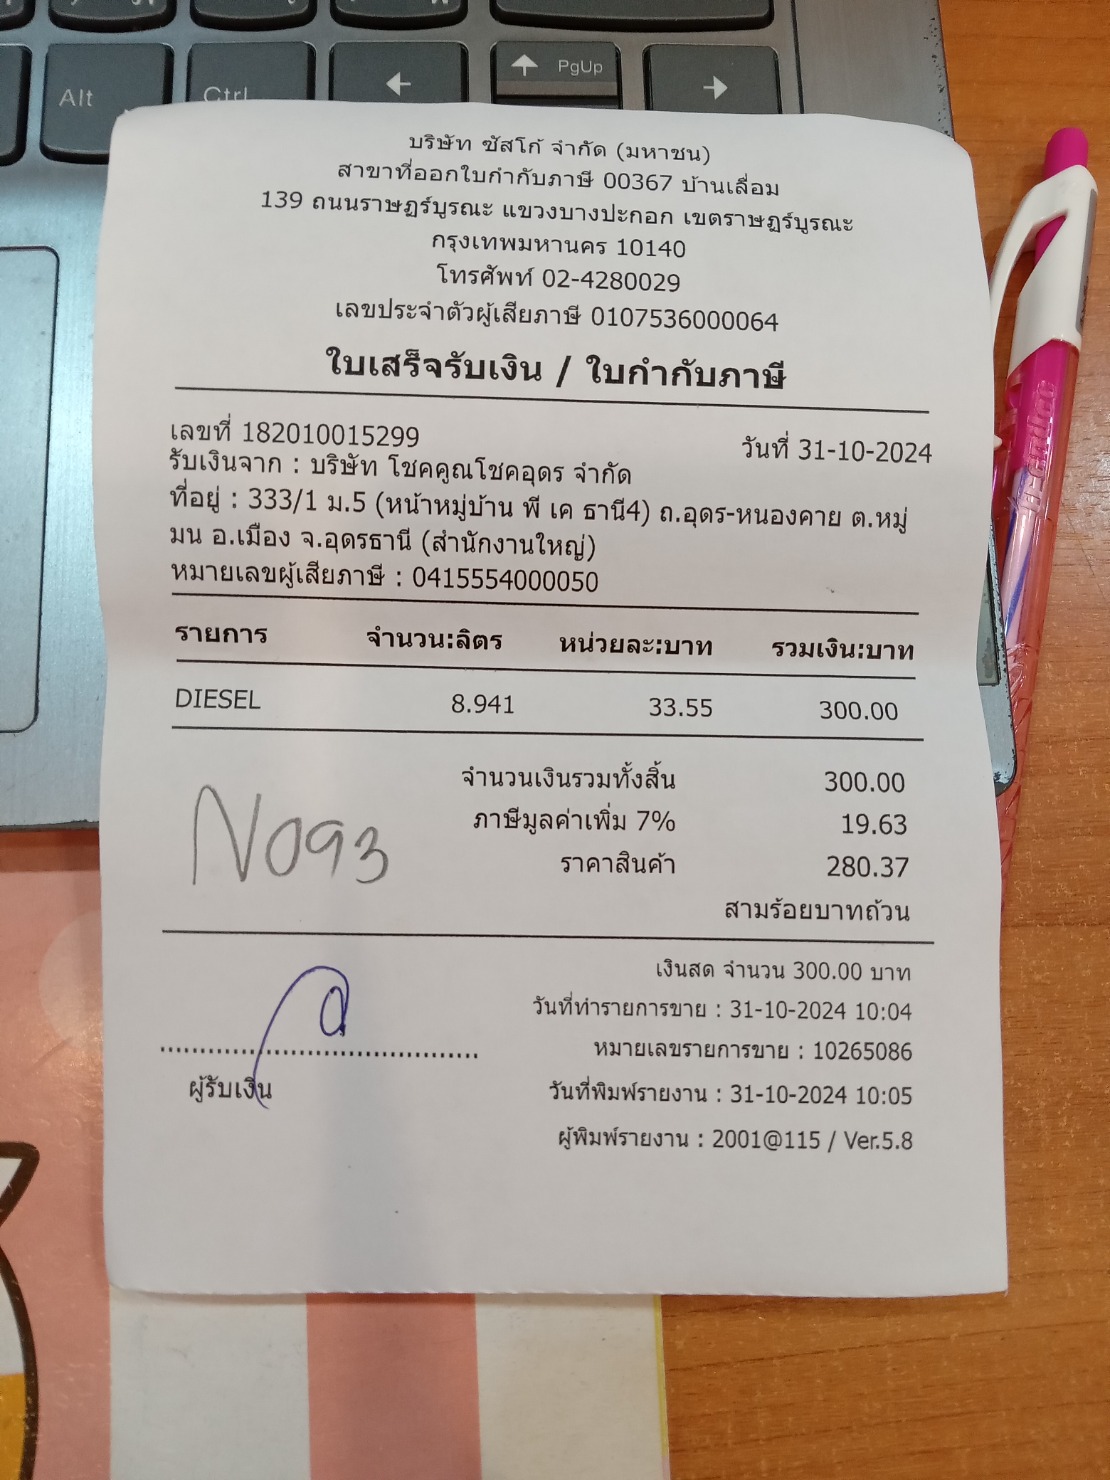 Alt
Ctrl
←
↑ PgUp
→
บริษัท ซัสโก้ จำกัด (มหาชน)
สาขาที่ออกใบกำกับภาษี 00367 บ้านเลื่อม
139 ถนนราษฎร์บูรณะ แขวงบางปะกอก เขตราษฎร์บูรณะ
กรุงเทพมหานคร 10140
โทรศัพท์ 02-4280029
เลขประจำตัวผู้เสียภาษี 0107536000064
ใบเสร็จรับเงิน / ใบกำกับภาษี
เลขที่ 182010015299 วันที่ 31-10-2024
รับเงินจาก : บริษัท โชคคูณโชคอุดร จำกัด
ที่อยู่ : 333/1 ม.5 (หน้าหมู่บ้าน พี เค ธานี4) ถ.อุดร-หนองคาย ต.หมู่
มน อ.เมือง จ.อุดรธานี (สำนักงานใหญ่)
หมายเลขผู้เสียภาษี : 0415554000050
รายการ จำนวน:ลิตร หน่วยละ:บาท รวมเงิน:บาท
DIESEL 8.941 33.55 300.00
จำนวนเงินรวมทั้งสิ้น 300.00
ภาษีมูลค่าเพิ่ม 7% 19.63
N093
ราคาสินค้า 280.37
สามร้อยบาทถ้วน
เงินสด จำนวน 300.00 บาท
วันที่ทำรายการขาย : 31-10-2024 10:04
หมายเลขรายการขาย : 10265086
ผู้รับเงิน
วันที่พิมพ์รายงาน : 31-10-2024 10:05
ผู้พิมพ์รายงาน : 2001@115 / Ver.5.8